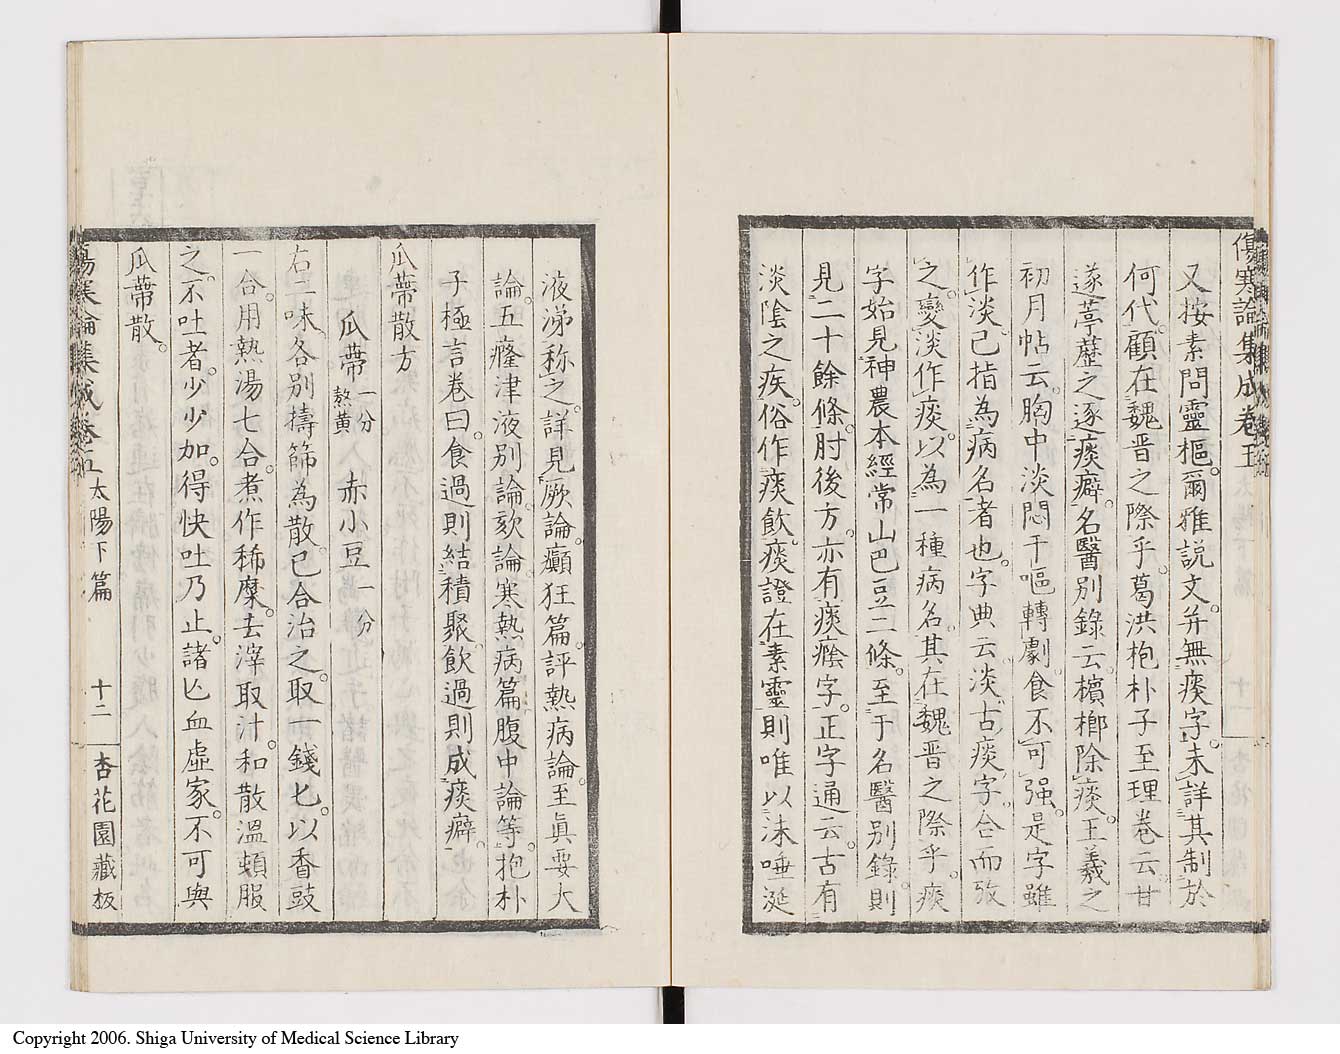 傷寒論集成卷五
又按素問靈樞爾雅説文并無痰字未詳其制於
何代顧在魏晋之際乎葛洪抱朴子至理卷云甘
遂葶藶之逐痰癖名醫別錄云檳榔除痰王羲之
初月帖云胸中淡悶干嘔轉劇食不可强是字雖
作淡已指為病名者也字典云淡古痰字合而攷
之變淡作痰以為一種病名其在魏晋之際乎痰
字始見神農本經常山巴豆二條至于名醫別錄則
見二十餘條肘後方亦有痰癊字正字通云古有
淡陰之疾俗作痰飲痰證在素靈則唯以沫唾涎
液涕称之詳見厥論癲狂篇評熱病論至眞要大
論五癃津液別論欬論寒熱病篇腹中論等抱朴
子極言卷曰食過則結積聚飲過則成痰癖
瓜蔕散方
瓜蔕一分熬黄 赤小豆一分
右二味各別擣篩為散已合治之取一錢匕以香豉
一合用熱湯七合煮作稀糜去滓取汁和散溫頓服
之不吐者少少加得快吐乃止諸亾血虛家不可與
瓜蔕散
傷寒論集成卷五 太陽下篇 十二 杏花園藏板
Copyright 2006. Shiga University of Medical Science Library